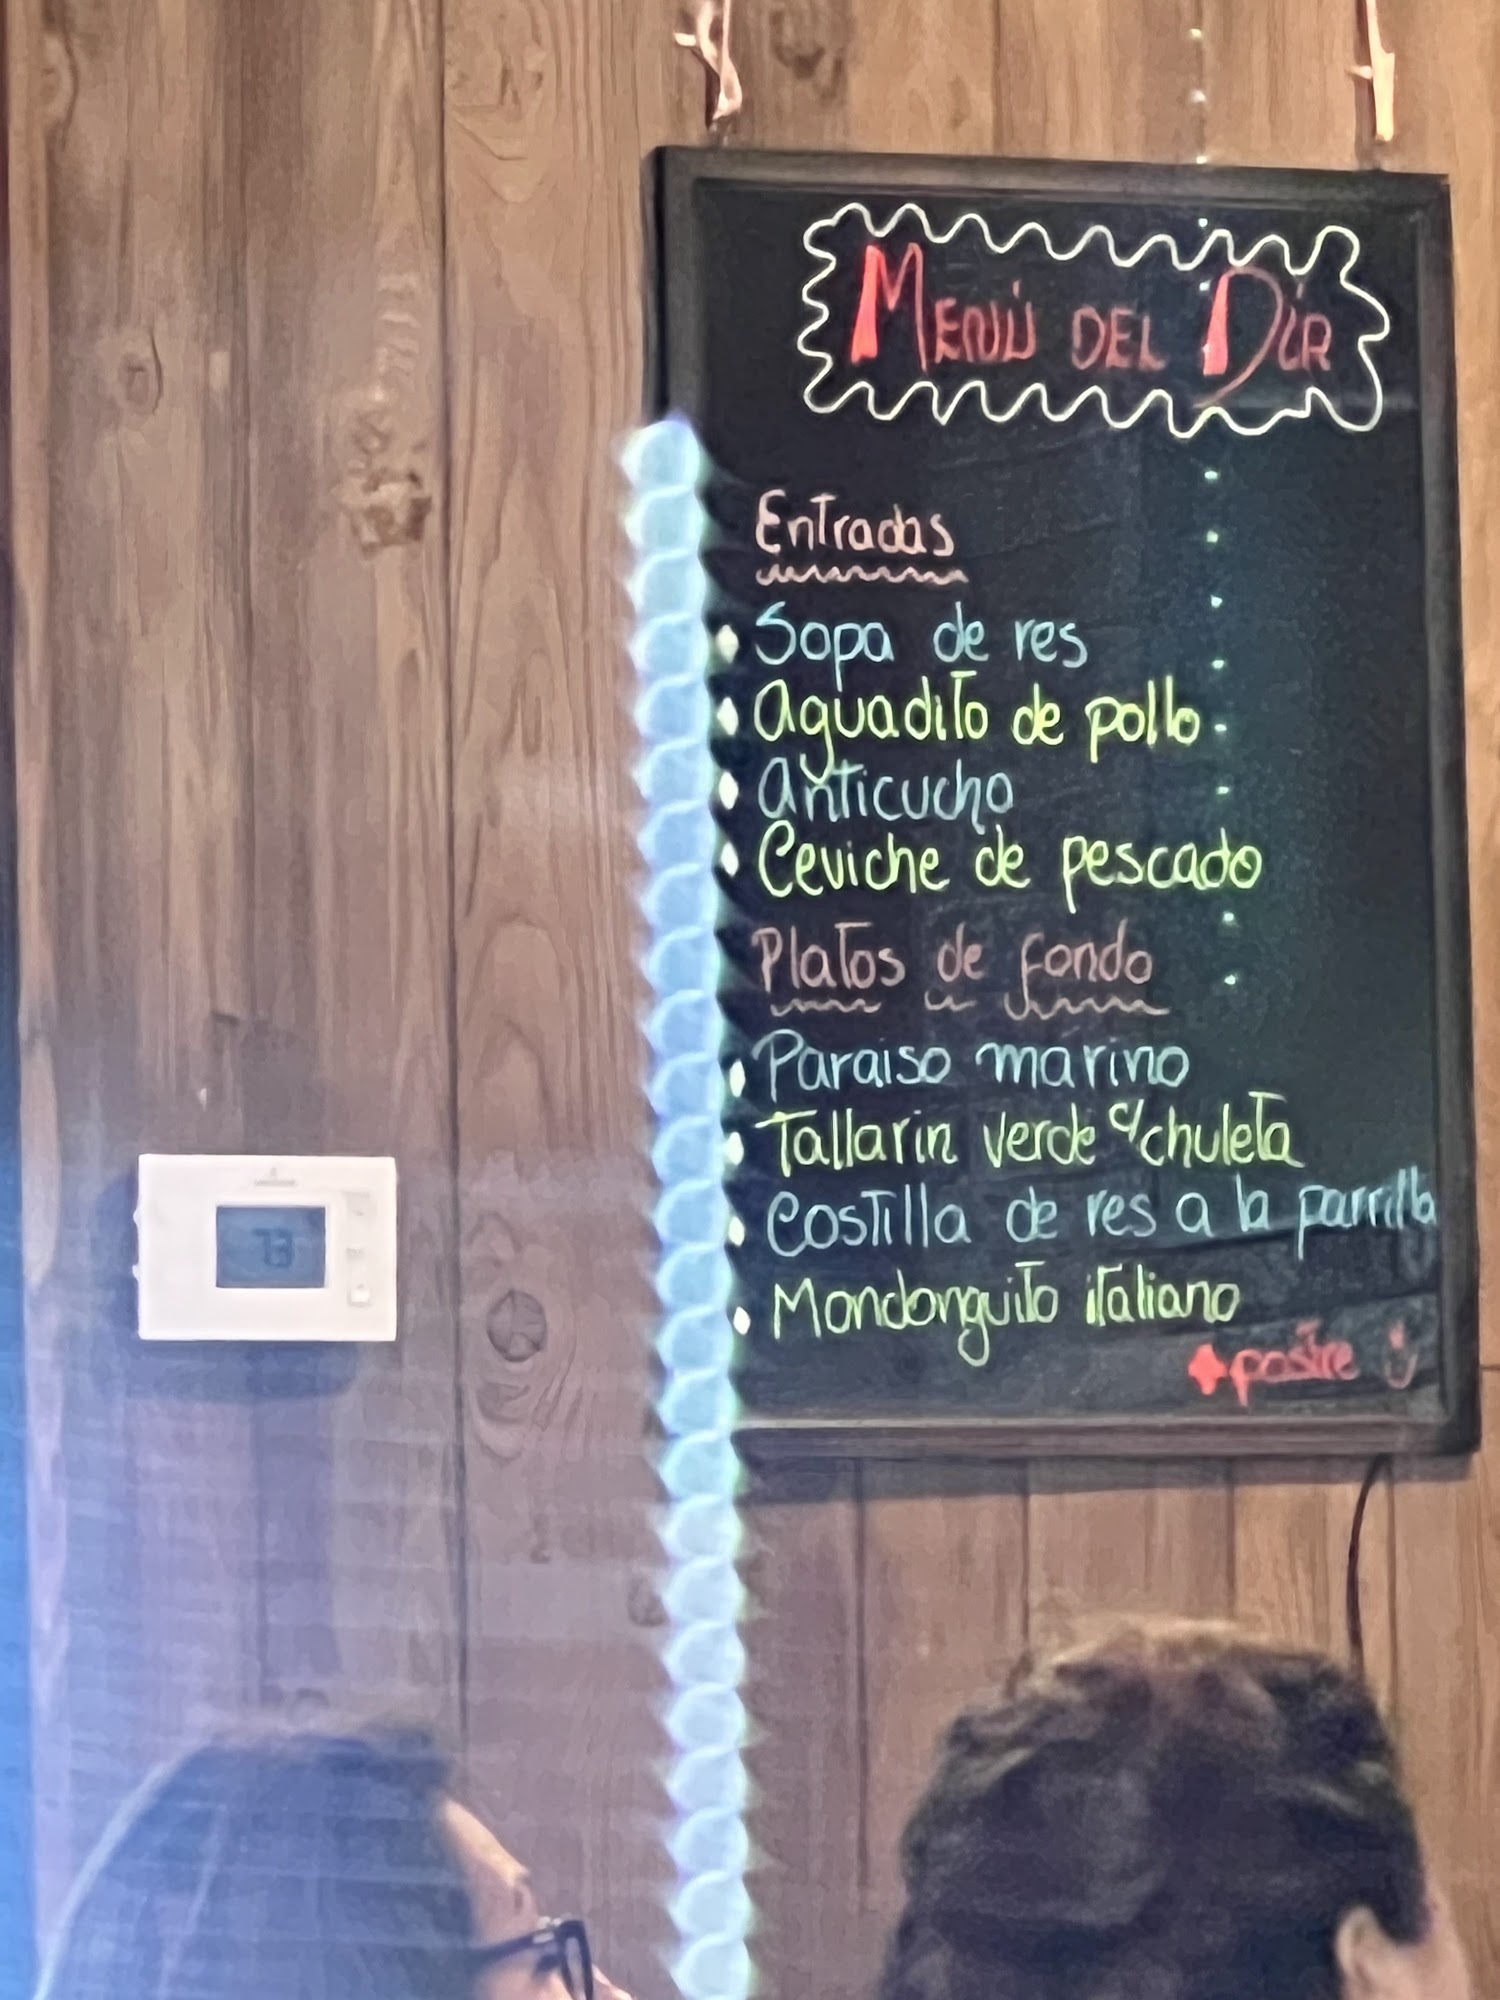 MENÚ DEL DÍA
Entradas
• Sopa de res
• Aguadito de pollo
• Anticucho
• Ceviche de pescado
Platos de fondo
• Paraiso marino
• Tallarin verde c/chuleta
• Costilla de res a la parrilla
• Mondonguito italiano
+ postre :)
73